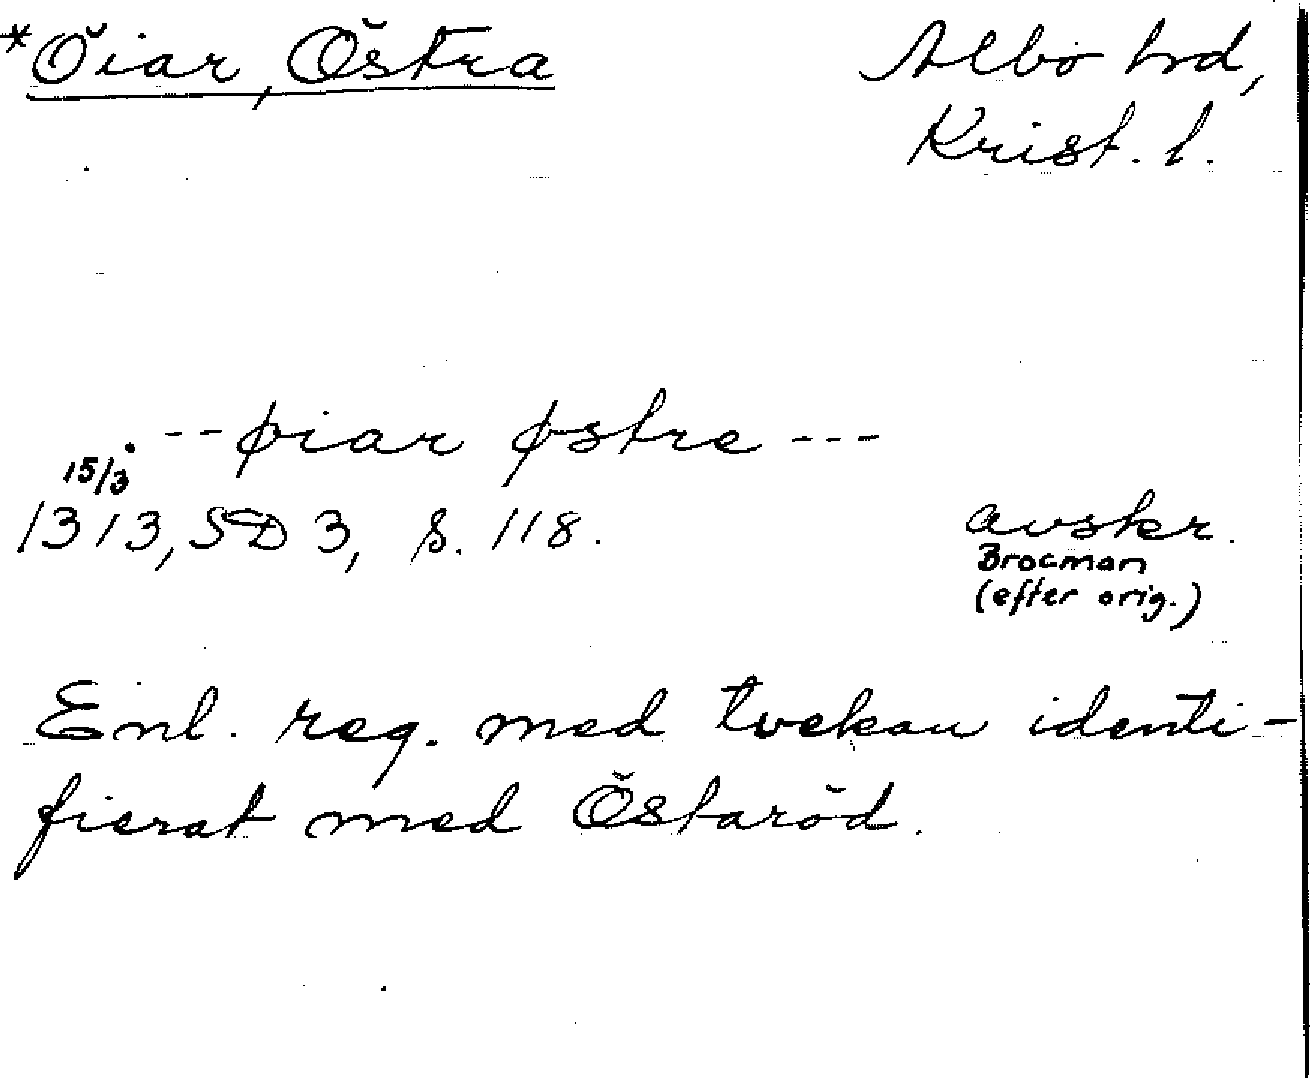 *Öiar, Östra
Albo hrd,
Krist. l.
--øiar østre ---
15/3
1313, SD 3, s. 118.
avskr.
Brocman
(efter orig.)
Enl. reg. med tvekan identi-
fierat med Östaröd.